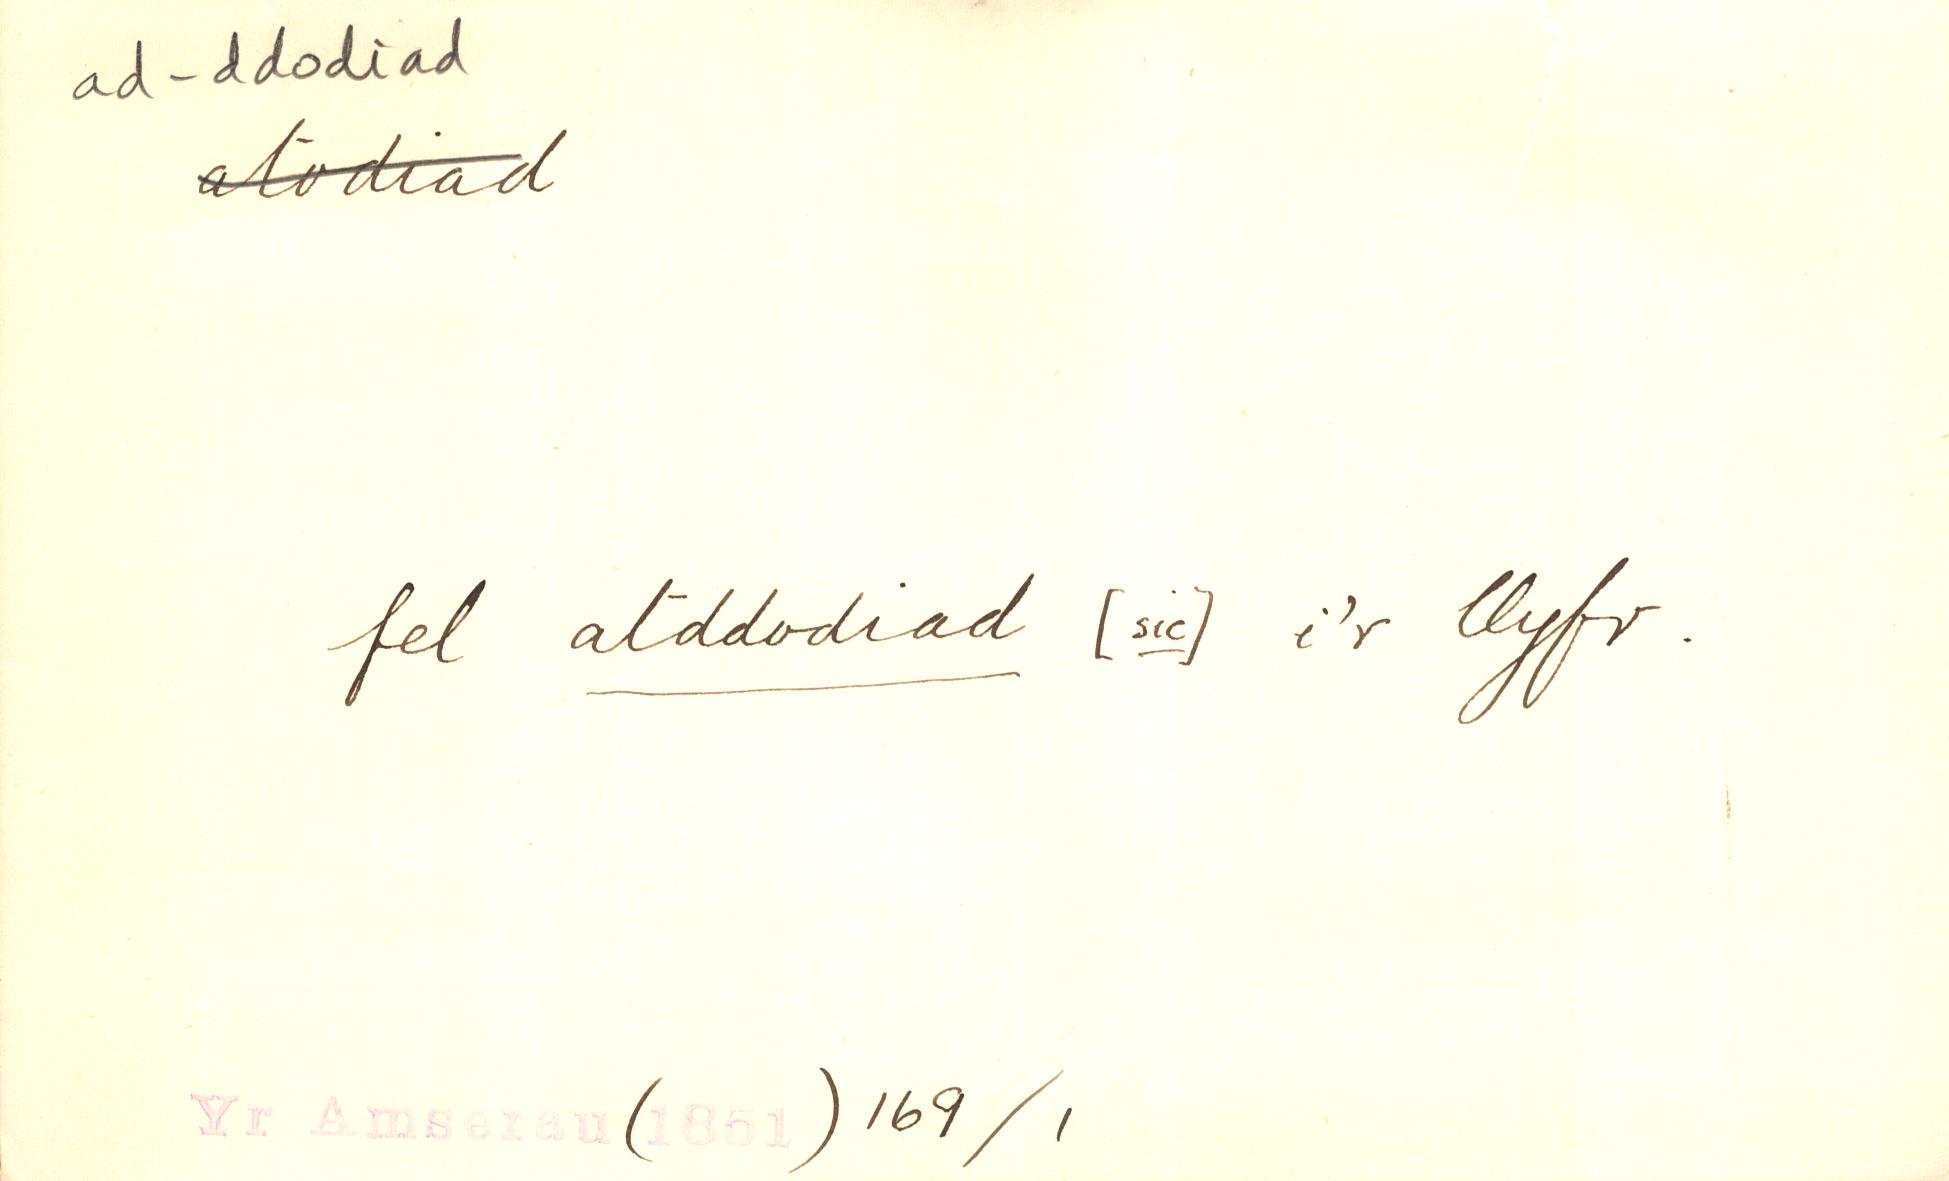 ad-ddodiad
atodiad
fel atddodiad [sic] i'r llyfr.
Yr Amserau (1851) 169/1